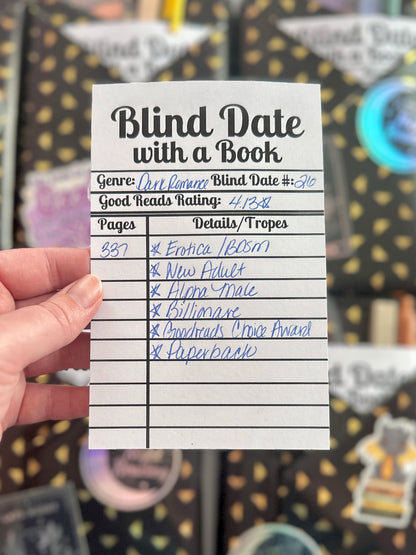 Blind Date
with a Book
Blind Date
with a Book
Genre: Dark Romance Blind Date #: 210
Good Reads Rating: 4.13☆
Pages Details/Tropes
337 ☆ Erotica/BDSM
☆ New Adult
☆ Alpha Male
☆ Billionare
☆ Goodreads Choice Award
☆ Paperback
Blind Date